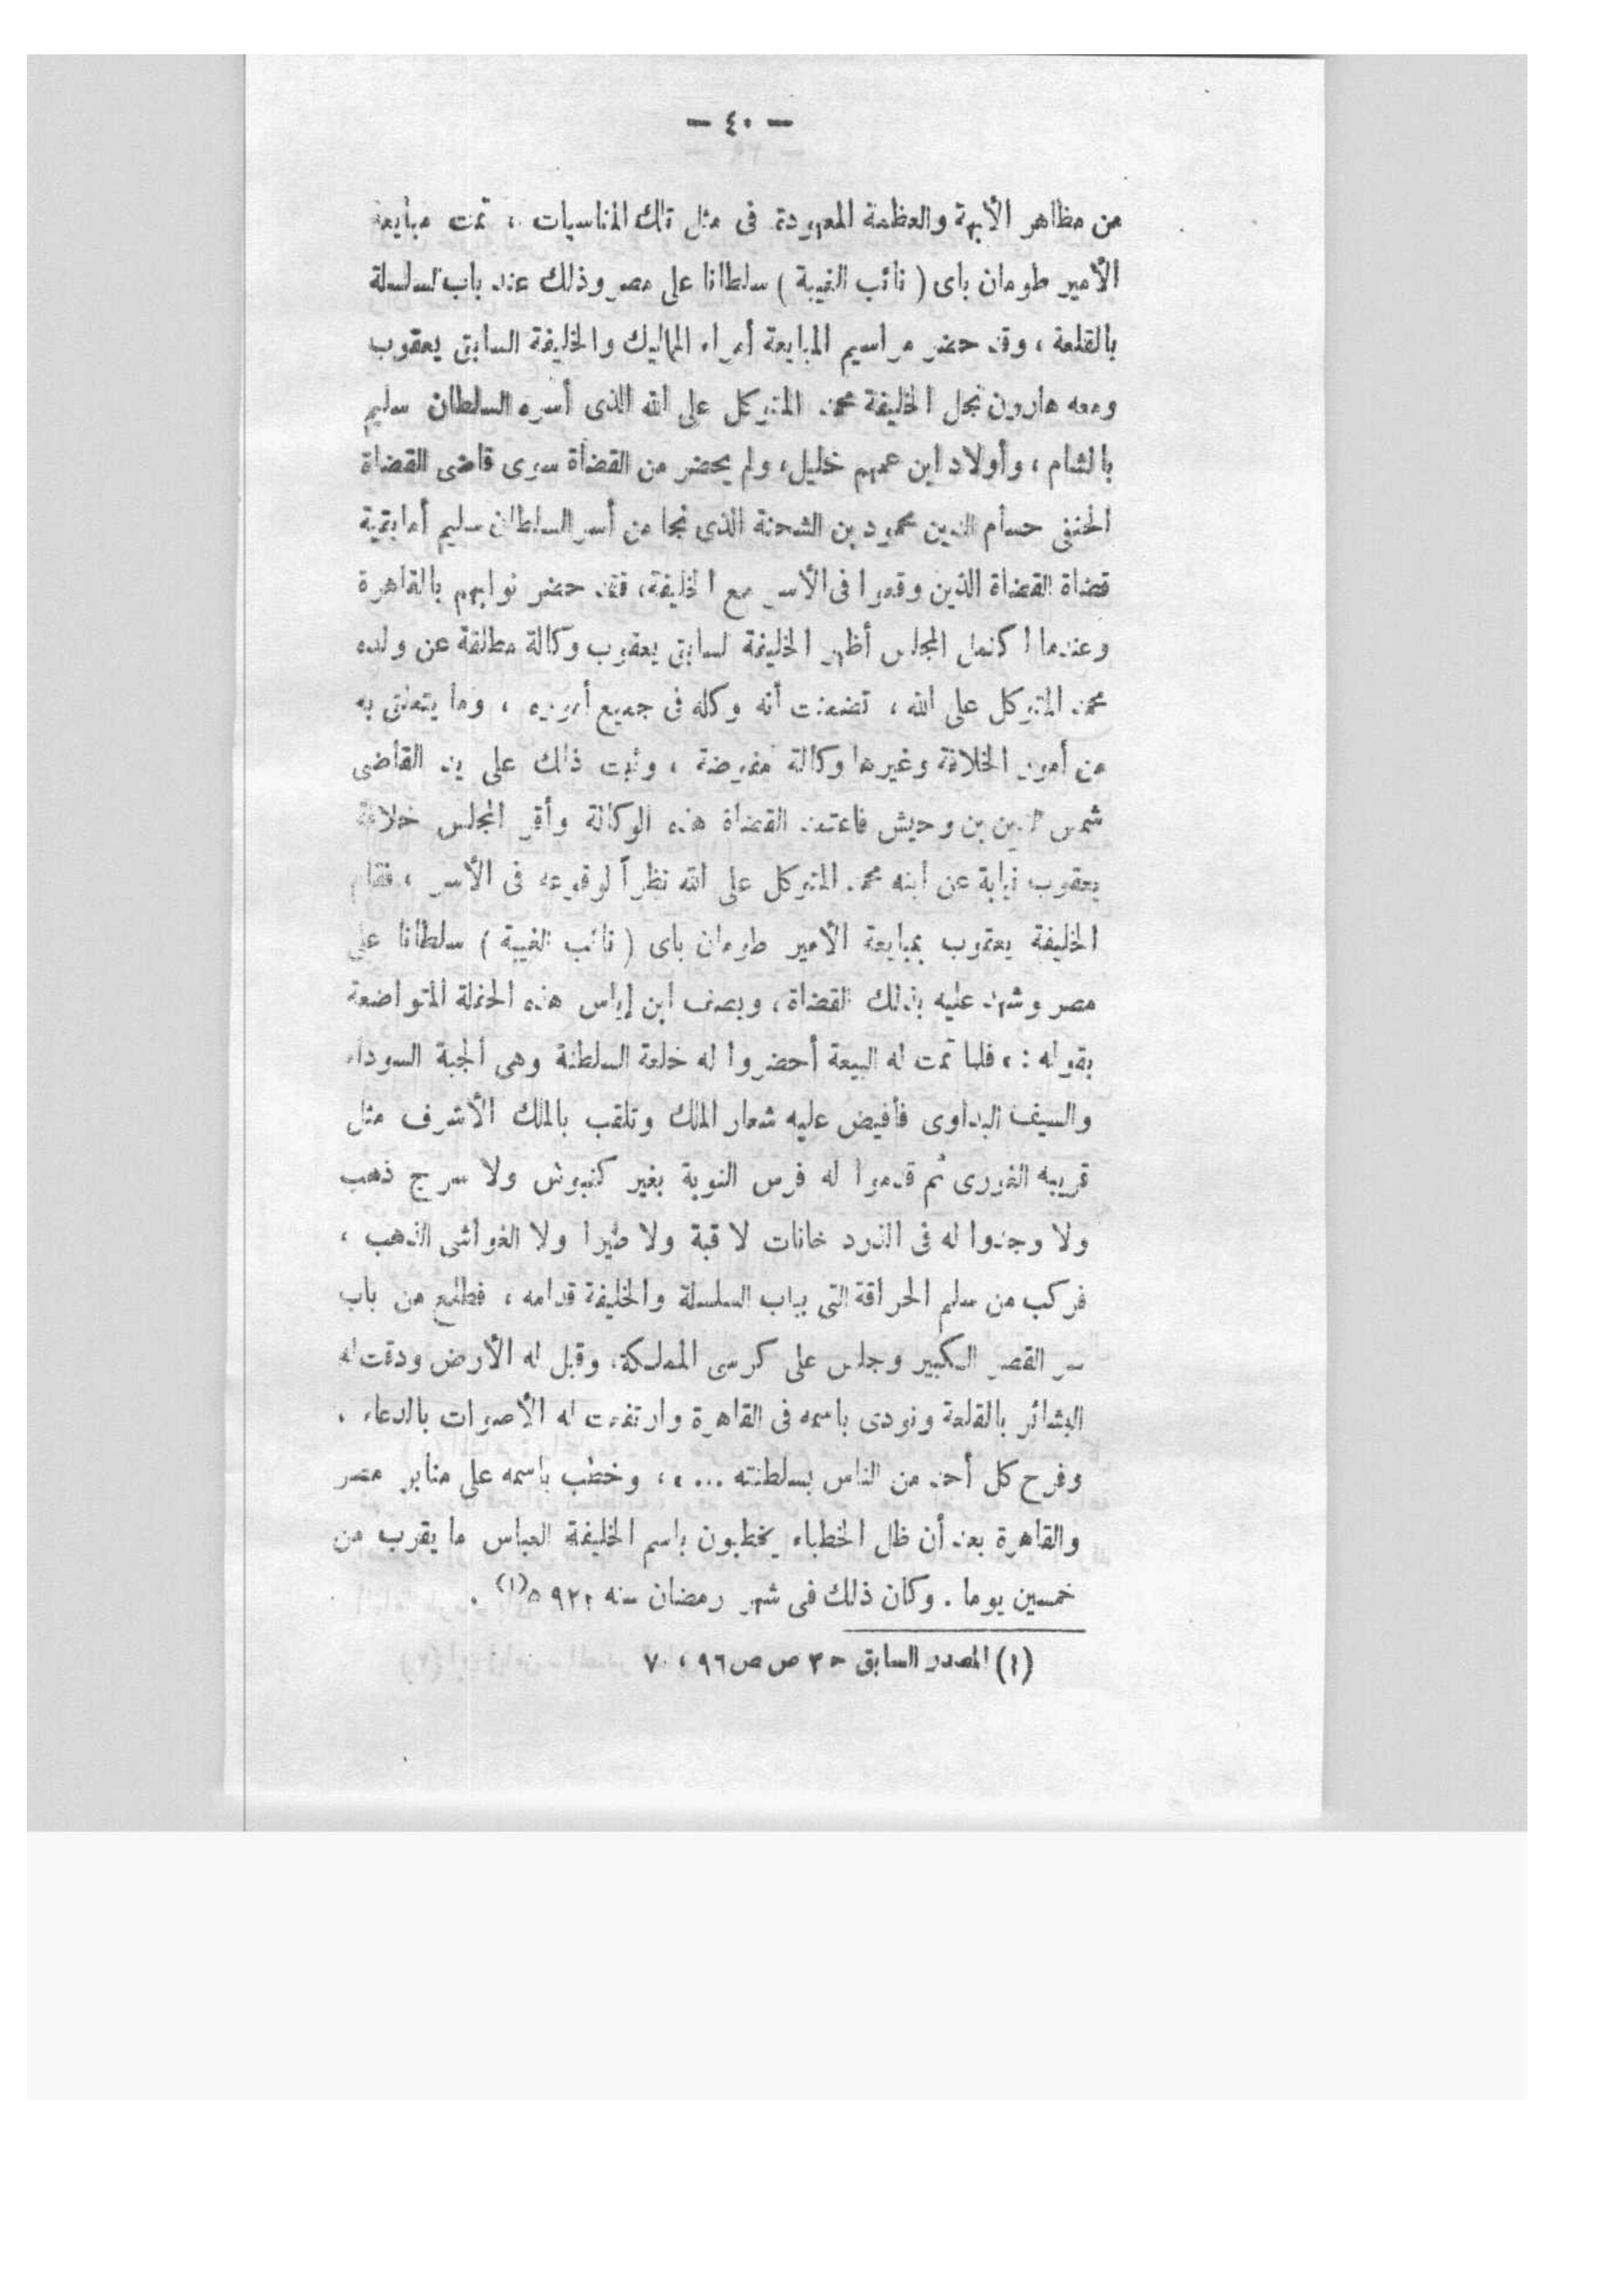 — ٤٠ —
من مظاهر الأبهة والعظمة المعهودة فى مثل تلك المناسبات ، تمت مبايعة
الأمير طومان باى ( نائب الغيبة ) سلطانا على مصر وذلك عند باب السلسلة
بالقلعة ، وقد حضر مراسيم المبايعة أمراء المماليك والخليفة السابق يعقوب
ومعه هارون نجل الخليفة محمد المتوكل على الله الذى أسره السلطان سليم
بالشام ، وأولاد ابن عمهم خليل، ولم يحضر من القضاة سوى قاضى القضاة
الحنفى حسام الدين محمود بن الشحنة الذى نجا من أسر السلطان سليم أما بقية
قضاة القضاة الذين وقعوا فى الأسر مع الخليفة، فقد حضر نوابهم بالقاهرة
وعندما اكتمل المجلس أظهر الخليفة السابق يعقوب وكالة مطلقة عن ولده
محمد المتوكل على الله ، تضمنت أنه وكله فى جميع أموره ، وما يتعلق به
من أمور الخلافة وغيرها وكالة مفوضة ، وثبت ذلك على يد القاضى
شمس الدين بن وحيش فاعتمد القضاة هذه الوكالة وأقر المجلس خلافة
يعقوب نيابة عن ابنه محمد المتوكل على الله نظراً لوقوعه فى الأسر ، فقام
الخليفة يعقوب بمبايعة الأمير طومان باى ( نائب الغيبة ) سلطانا على
مصر وشهد عليه بذلك القضاة، ويصف ابن إياس هذه الحفلة المتواضعة
بقوله : ، فلما تمت له البيعة أحضروا له خلعة السلطنة وهى الجبة السوداء
والسيف البداوى فأفيض عليه شعار الملك وتلقب بالملك الأشرف مثل
قريبه الغورى ثم قدموا له فرس النوبة بغير كنبوش ولا سرج ذهب
ولا وجدوا له فى الزرد خانات لا قبة ولا طيرا ولا الغواشى الذهب ،
فركب من سلم الحراقة التى بباب السلسلة والخليفة قدامه ، فطلع من باب
سر القصر الكبير وجلس على كرسى المملكة، وقبل له الأرض ودقت له
البشائر بالقلعة ونودى باسمه فى القاهرة وارتفعت له الأصوات بالدعاء .
وفرح كل أحد من الناس بسلطنته ... ، ، وخطب باسمه على منابر مصر
والقاهرة بعد أن ظل الخطباء يخطبون باسم الخليفة العباس ما يقرب من
خمسين يوما . وكان ذلك فى شهر رمضان سنه ٩٢٢ ه(١) .
(١) المصدر السابق ح ٣ ص ص ٩٦ ، ٧٠